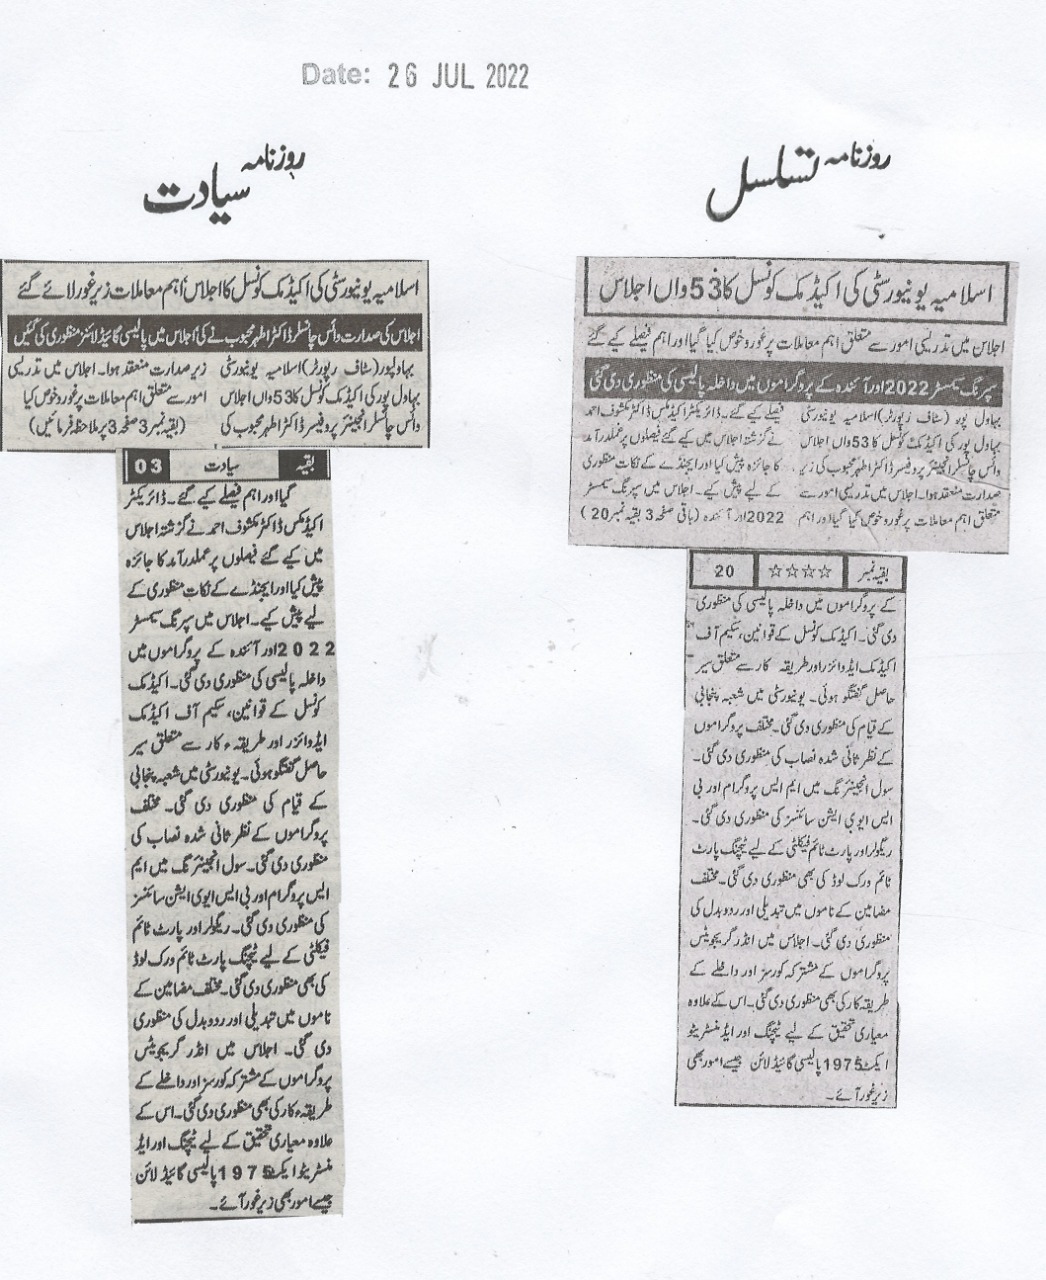 Date: 26 JUL 2022
روزنامہ تسلسل
اسلامیہ یونیورسٹی کی اکیڈمک کونسل کا 53 واں اجلاس
اجلاس میں تدریسی امور سے متعلق اہم معاملات پر غور و خوص کیا گیا اور اہم فیصلے کیے گئے
سپرنگ سمسٹر 2022 اور آئندہ کے پروگراموں میں داخلہ پالیسی کی منظوری دی گئی
بہاول پور (سٹاف رپورٹر) اسلامیہ یونیورسٹی
بہاول پور کی اکیڈمک کونسل کا 53 واں اجلاس
وائس چانسلر انجینئر پروفیسر ڈاکٹر اطہر محبوب کی زیر
صدارت منعقد ہوا۔ اجلاس میں تدریسی امور سے
متعلق اہم معاملات پر غور و خوص کیا گیا اور اہم
فیصلے کیے گئے۔ ڈائریکٹر اکیڈمکس ڈاکٹر مکشوف احمد
نے گزشتہ اجلاس میں کیے گئے فیصلوں پر عملدرآمد
کا جائزہ پیش کیا اور ایجنڈے کے نکات منظوری
کے لیے پیش کیے۔ اجلاس میں سپرنگ سمسٹر
2022 اور آئندہ (باقی صفحہ 3 بقیہ نمبر 20)
بقیہ نمبر ☆☆☆☆ 20
کے پروگراموں میں داخلہ پالیسی کی منظوری
دی گئی۔ اکیڈمک کونسل کے قوانین، سکیم آف
اکیڈمک ایڈوائزر اور طریقہ کار سے متعلق سیر
حاصل گفتگو ہوئی۔ یونیورسٹی میں شعبہ پنجابی
کے قیام کی منظوری دی گئی۔ مختلف پروگراموں
کے نظر ثانی شدہ نصاب کی منظوری دی گئی۔
سول انجینئرنگ میں ایم ایس پروگرام اور بی
ایس ایوی ایشن سائنسز کی منظوری دی گئی۔
ریگولر اور پارٹ ٹائم فیکلٹی کے لیے ٹیچنگ پارٹ
ٹائم ورک لوڈ کی بھی منظوری دی گئی۔ مختلف
مضامین کے ناموں میں تبدیلی اور ردوبدل کی
منظوری دی گئی۔ اجلاس میں انڈر گریجویٹس
پروگراموں کے مشترکہ کورسز اور داخلے کے
طریقہ کار کی بھی منظوری دی گئی۔ اس کے علاوہ
معیاری تحقیق کے لیے ٹیچنگ اور ایڈمنسٹریٹو
ایکٹ 1975 پالیسی گائیڈ لائن جیسے امور بھی
زیر غور آئے۔
روزنامہ سیادت
اسلامیہ یونیورسٹی کی اکیڈمک کونسل کا اجلاس' اہم معاملات زیر غور لائے گئے
اجلاس کی صدارت وائس چانسلر ڈاکٹر اطہر محبوب نے کی' اجلاس میں پالیسی گائیڈ لائنز منظوری کی گئیں
بہاولپور (سٹاف رپورٹر) اسلامیہ یونیورسٹی
بہاول پور کی اکیڈمک کونسل کا 53 واں اجلاس
وائس چانسلر انجینئر پروفیسر ڈاکٹر اطہر محبوب کی
زیر صدارت منعقد ہوا۔ اجلاس میں تدریسی
امور سے متعلق اہم معاملات پر غور و خوص کیا
(بقیہ نمبر 3 صفحہ 3 پر ملاحظہ فرمائیں)
بقیہ سیادت 03
گیا اور اہم فیصلے کیے گئے۔ ڈائریکٹر
اکیڈمکس ڈاکٹر مکشوف احمد نے گزشتہ اجلاس
میں کیے گئے فیصلوں پر عملدرآمد کا جائزہ
پیش کیا اور ایجنڈے کے نکات منظوری کے
لیے پیش کیے۔ اجلاس میں سپرنگ سمسٹر
2022 اور آئندہ کے پروگراموں میں
داخلہ پالیسی کی منظوری دی گئی۔ اکیڈمک
کونسل کے قوانین، سکیم آف اکیڈمک
ایڈوائزر اور طریقہ ء کار سے متعلق سیر
حاصل گفتگو ہوئی۔ یونیورسٹی میں شعبہ پنجابی
کے قیام کی منظوری دی گئی۔ مختلف
پروگراموں کے نظر ثانی شدہ نصاب کی
منظوری دی گئی۔ سول انجینئرنگ میں ایم
ایس پروگرام اور بی ایس ایوی ایشن سائنسز
کی منظوری دی گئی۔ ریگولر اور پارٹ ٹائم
فیکلٹی کے لیے ٹیچنگ پارٹ ٹائم ورک لوڈ
کی بھی منظوری دی گئی۔ مختلف مضامین کے
ناموں میں تبدیلی اور ردوبدل کی منظوری
دی گئی۔ اجلاس میں انڈر گریجویٹس
پروگراموں کے مشترکہ کورسز اور داخلے کے
طریقہ ء کار کی بھی منظوری دی گئی۔ اس کے
علاوہ معیاری تحقیق کے لیے ٹیچنگ اور ایڈ
منسٹریٹو ایکٹ 1975 پالیسی گائیڈ لائن
جیسے امور بھی زیر غور آئے۔